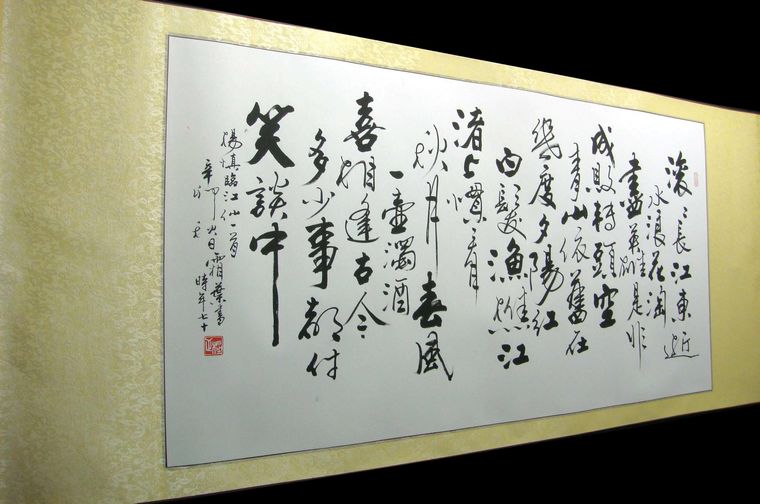 滚〻長江東逝
水浪花淘
盡英雄是非
成敗轉頭空
青山依舊在
幾度夕陽紅
白髮漁樵江
渚上慣看
秋月春風
一壺濁酒
喜相逢古今
多少事都付
笑談中
楊慎臨江仙一首
辛卯
霜葉書
時年七十